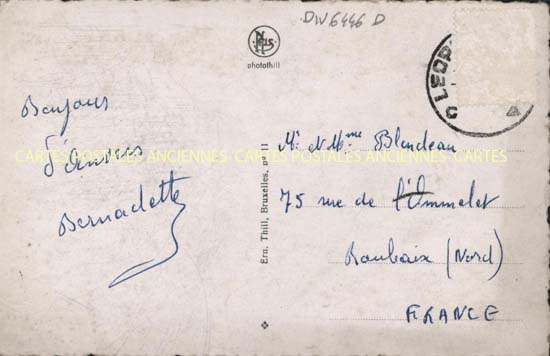 DIV6446 D
NELS
photothill
Bonjour
d'Anvers
Bernadette
Mr et Mme Blondeau
75 rue de l'Ommelet
Roubaix (Nord)
FRANCE
Ern. Thill, Bruxelles, nº 11
CARTES POSTALES ANCIENNES CARTES POSTALES ANCIENNES CARTES